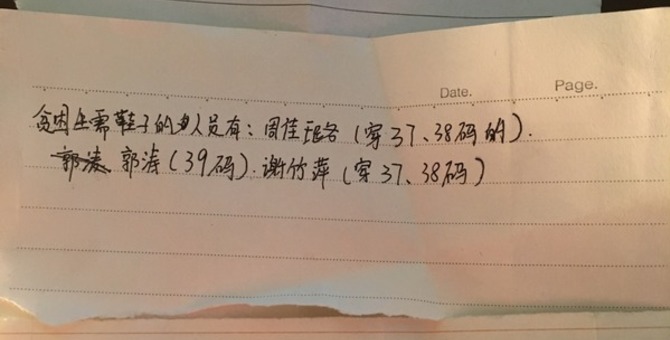 Date. Page.
贫困生需鞋子的人员有：周佳珞（穿37、38码的）.
郭涛（39码）.谢竹萍（穿37、38码）